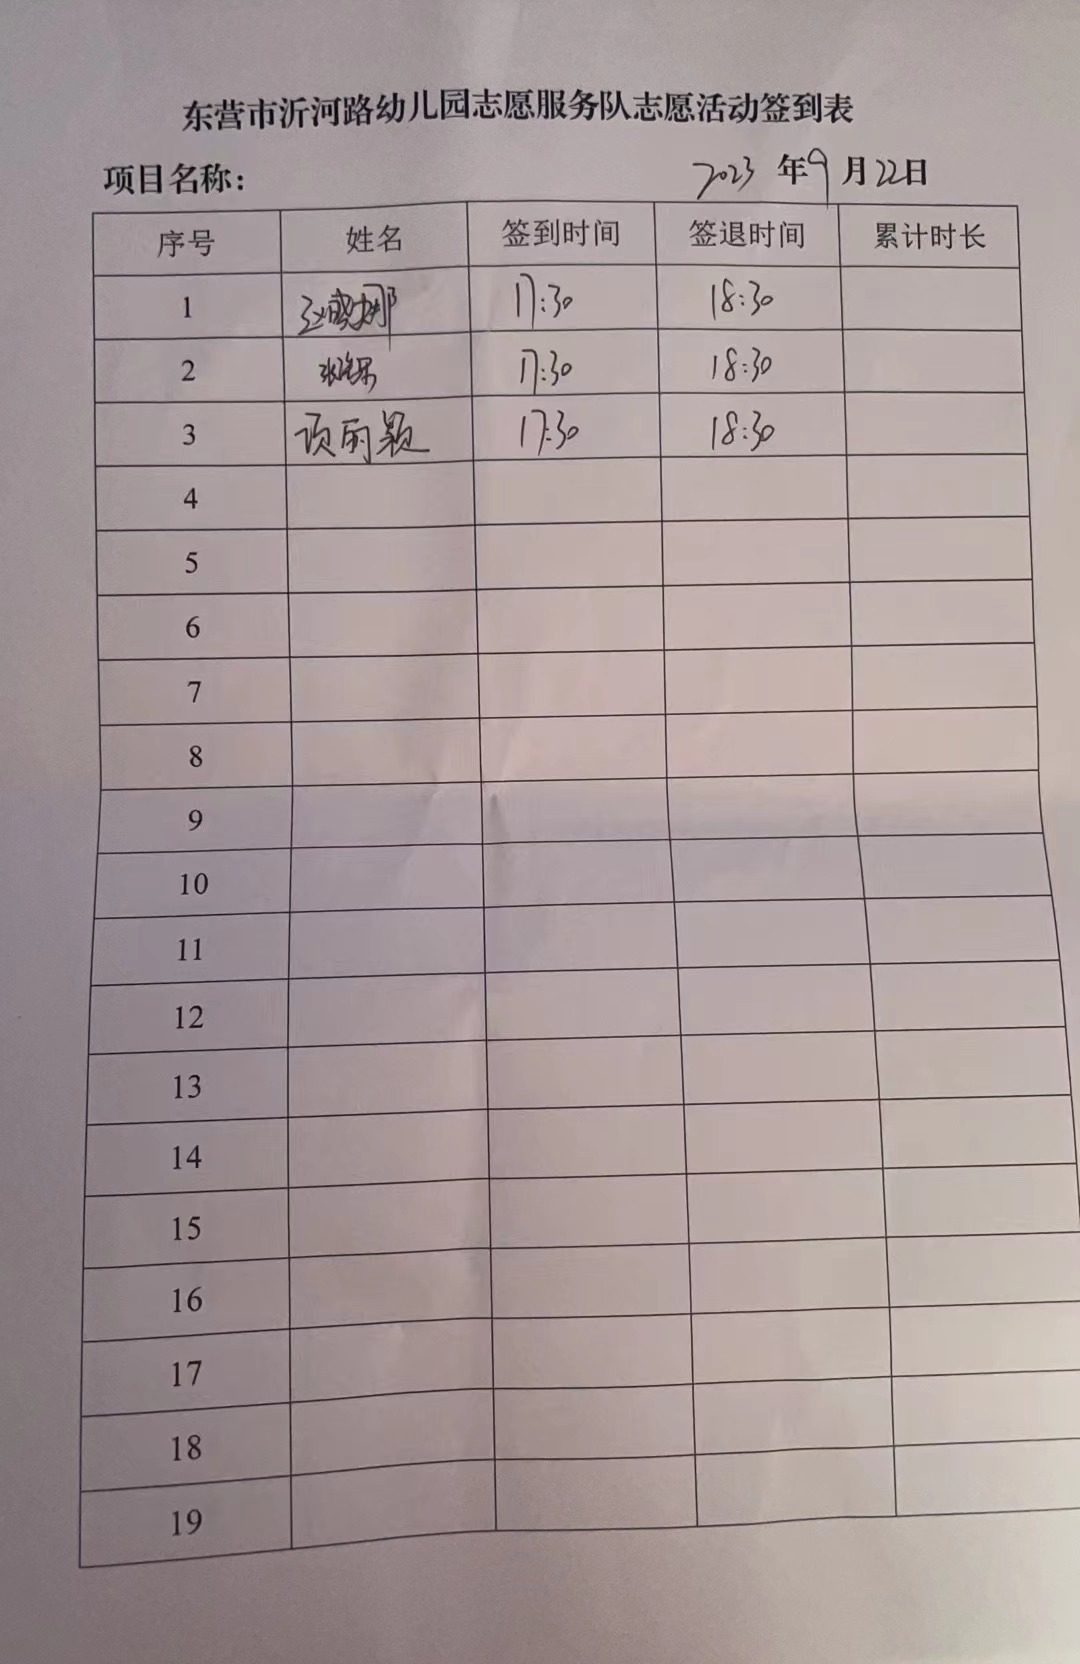 东营市沂河路幼儿园志愿服务队志愿活动签到表
项目名称： 2023 年 9 月 22 日
序号 姓名 签到时间 签退时间 累计时长
1 17:30 18:30
2 17:30 18:30
3 项丽颖 17:30 18:30
4
5
6
7
8
9
10
11
12
13
14
15
16
17
18
19